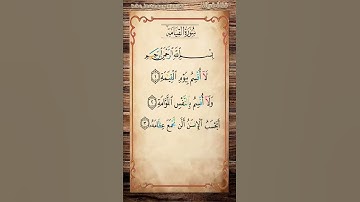 سُورَةُ الْقِيَامَةِ
بِسْمِ اللَّهِ الرَّحْمَٰنِ الرَّحِيمِ
لَا أُقْسِمُ بِيَوْمِ الْقِيَٰمَةِ ١
وَلَا أُقْسِمُ بِالنَّفْسِ اللَّوَّامَةِ ٢
أَيَحْسَبُ الْإِنسَٰنُ أَلَّن نَّجْمَعَ عِظَامَهُۥ ٣